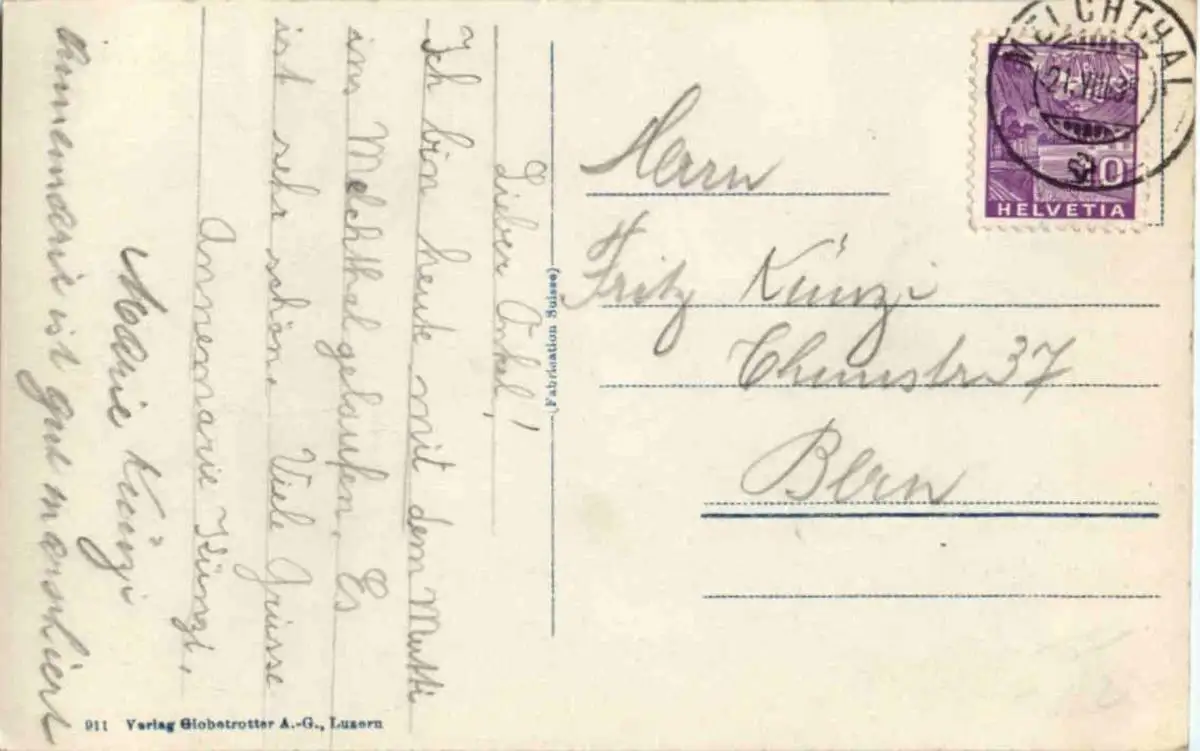 Lieber Onkel!
Ich bin heute mit dem Mutti
ins Melchthal gelaufen. Es
ist sehr schön. Viele Grüsse
Annemarie Künzi.
Marie Künzi
Annemarie ist gut marschiert
(Fabrication Suisse)
911 Verlag Globetrotter A.-G., Luzern
MELCHTHAL
21. VIII. 3
10
HELVETIA
Herrn
Fritz Künzi
Bern